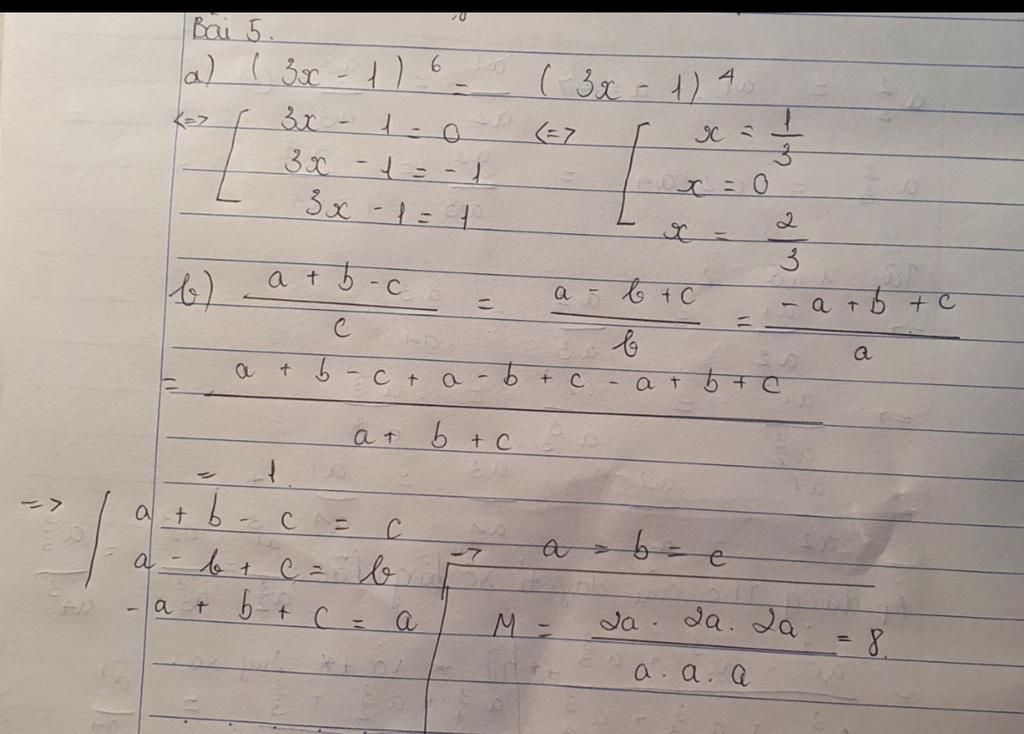 Bài 5.
a) (3x - 1)^6 = (3x - 1)^4
<=> [ 3x - 1 = 0 <=> [ x = 1/3
3x - 1 = -1 x = 0
3x - 1 = 1 x = 2/3
b) (a + b - c)/c = (a - b + c)/b = (-a + b + c)/a
= (a + b - c + a - b + c - a + b + c)/(a + b + c)
= 1.
=> a + b - c = c
a - b + c = b -> a = b = c
-a + b + c = a M = (2a . 2a . 2a)/(a . a . a) = 8.